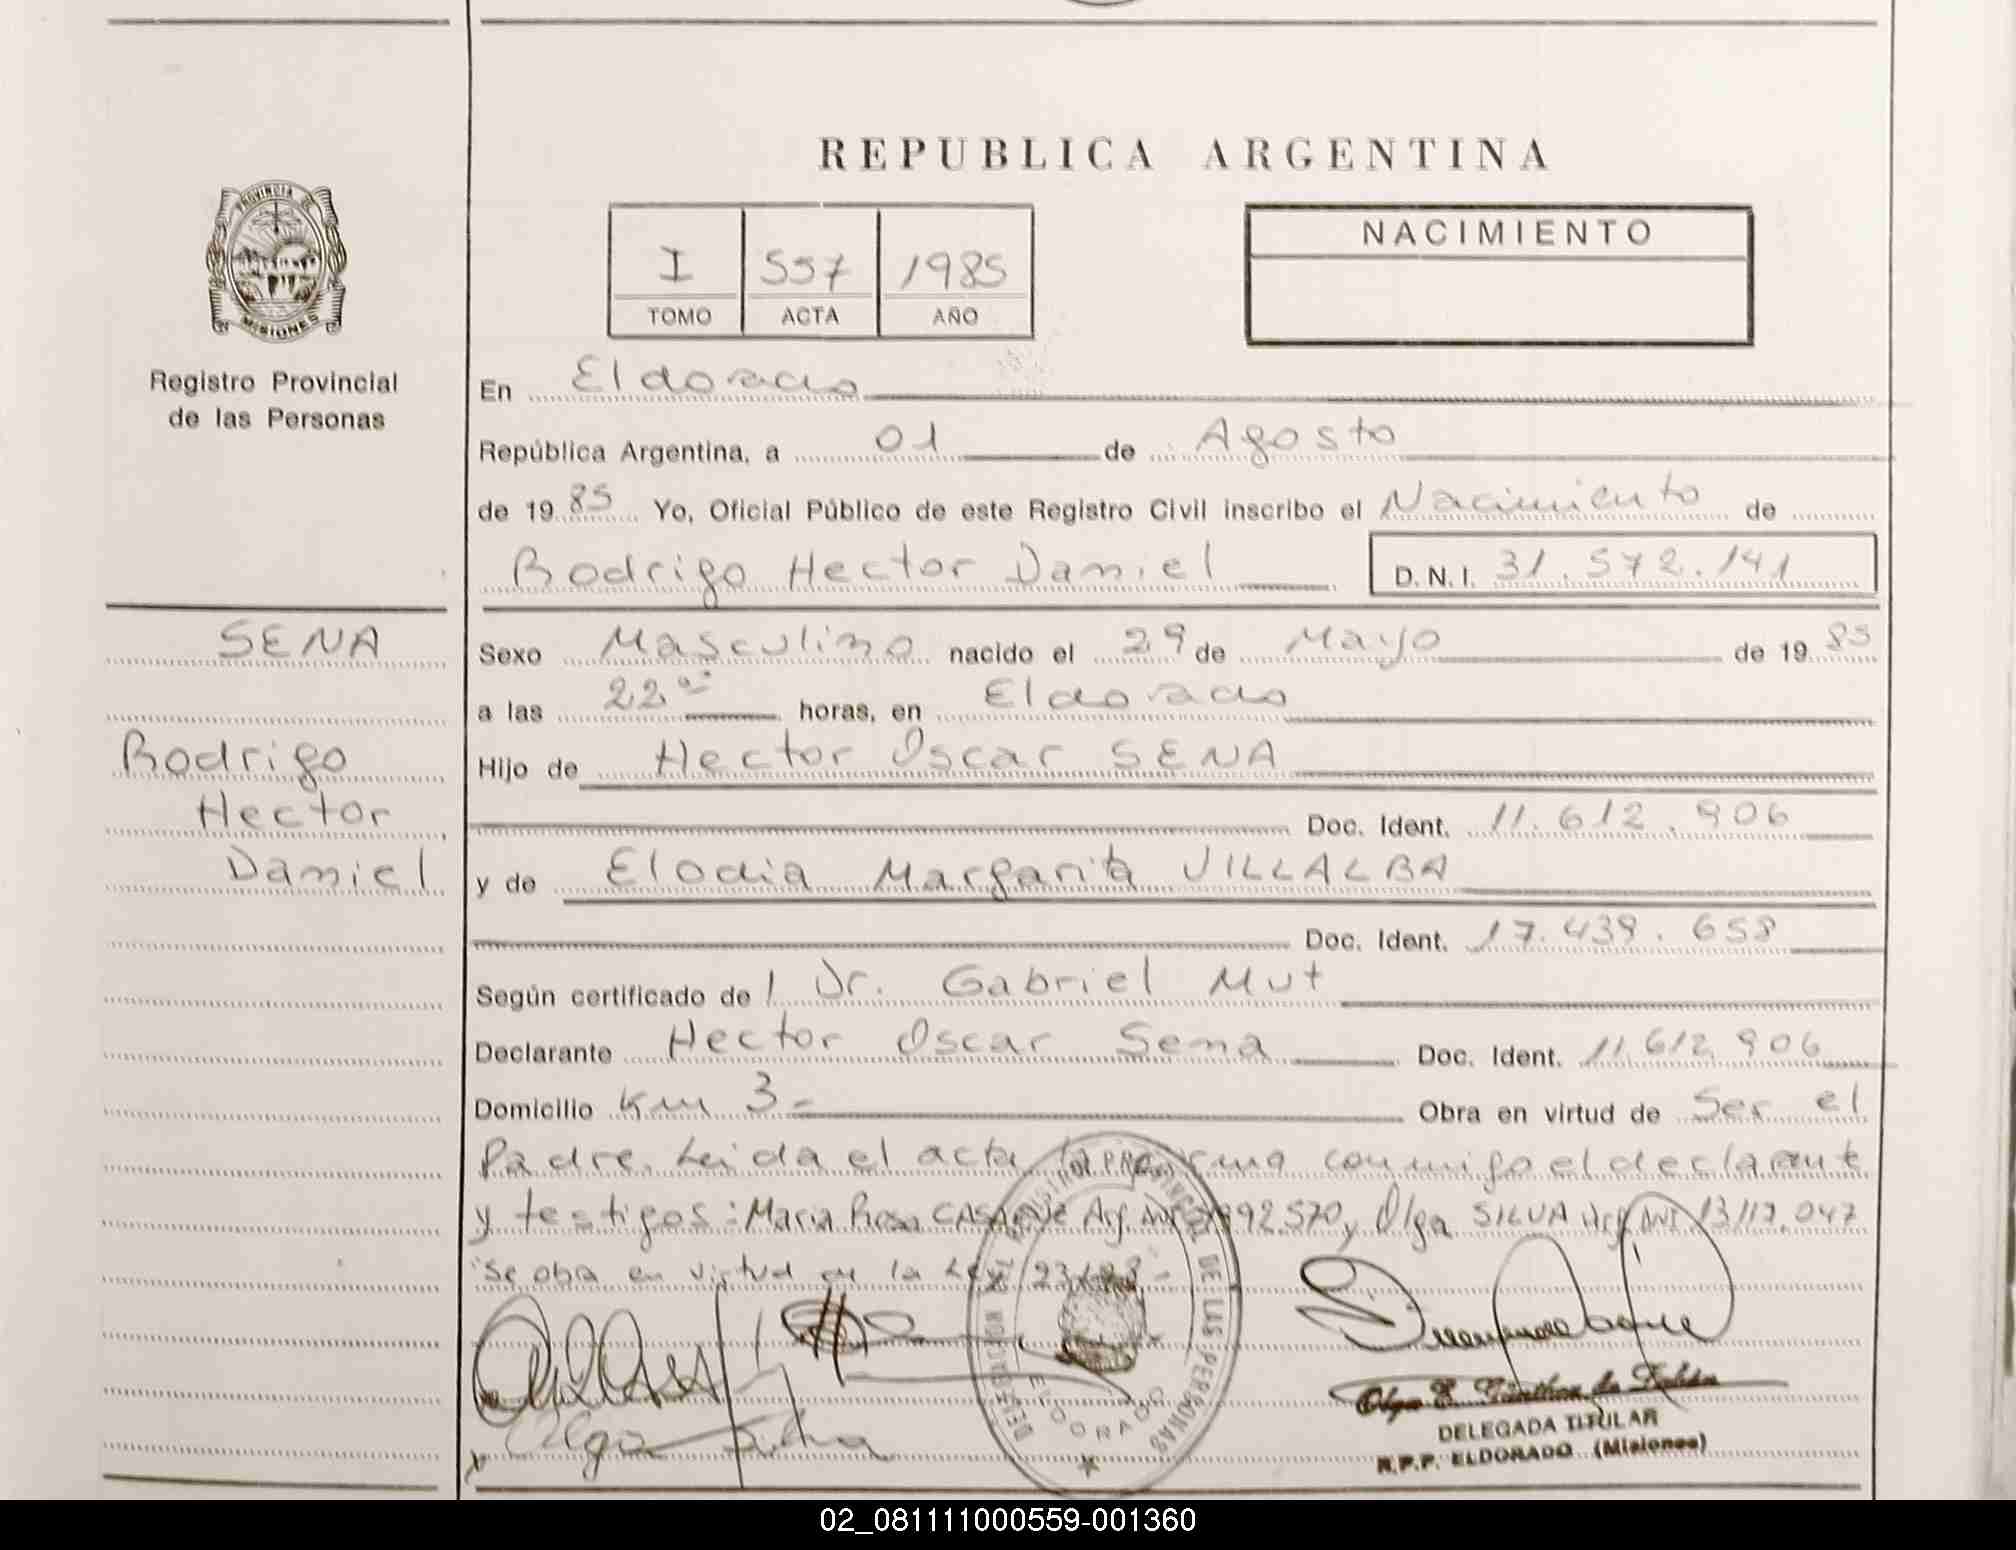 REPUBLICA ARGENTINA
PROVINCIA DE
MISIONES
Registro Provincial
de las Personas
I 557 1985
TOMO ACTA AÑO
NACIMIENTO
En Eldorado
República Argentina, a 01 de Agosto
de 19 85 Yo, Oficial Público de este Registro Civil inscribo el Nacimiento de
Rodrigo Hector Daniel D.N.I. 31.572.141
SENA
Rodrigo
Hector
Daniel
Sexo Masculino nacido el 29 de Mayo de 19 85
a las 22 horas, en Eldorado
Hijo de Hector Oscar SENA
Doc. Ident. 11.612.906
y de Elodia Margarita VILLALBA
Doc. Ident. 17.439.658
Según certificado de l Dr. Gabriel Mut
Declarante Hector Oscar Sena Doc. Ident. 11.612.906
Domicilio Km 3- Obra en virtud de Ser el
Padre. Leida el acta la firma conmigo el declarante
y testigos: Maria Rosa Arg. DNI 92.570 y Olga SILVA Arg. DNI 13.117.047
Se obra en virtud de la Ley
REGISTRO PROVINCIAL DE LAS PERSONAS
ELDORADO
Olga Silva
Olga E. de
DELEGADA TITULAR
R.P.P. ELDORADO (Misiones)
02_081111000559-001360